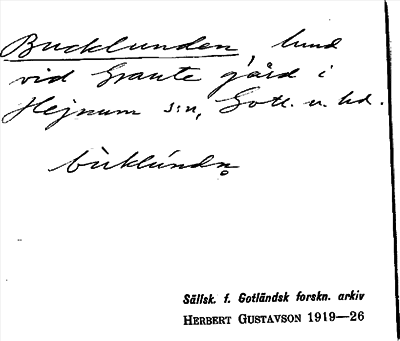 Bucklunden, lund
vid Graute gård i
Hejnum s:n, Gotl. n. hd.
bùklúndn̥
Sällsk. f. Gotländsk forskn. arkiv
HERBERT GUSTAVSON 1919—26